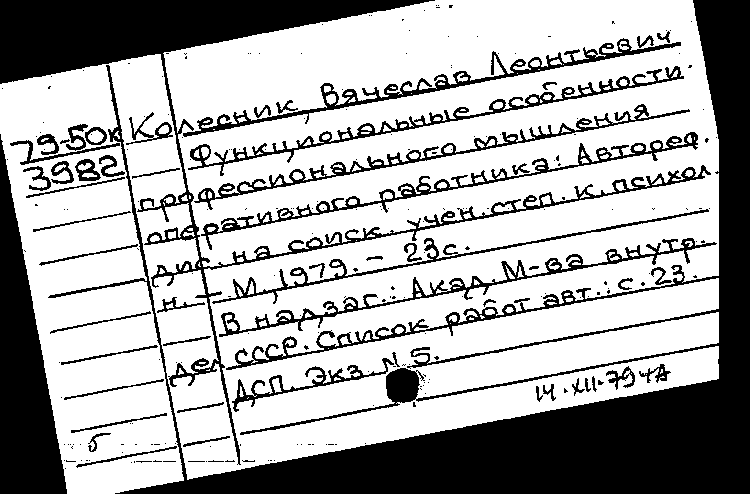 79-50к
3982
Колесник, Вячеслав Леонтьевич
Функциональные особенности
профессионального мышления
оперативного работника: Автореф.
дис. на соиск. учен. степ. к. психол.
н. - М., 1979. - 23с.
В надзаг.: Акад. М-ва внутр.
дел СССР. Список работ авт.: с. 23.
ДСП. Экз. N 5.
14.XII.79 чА
б